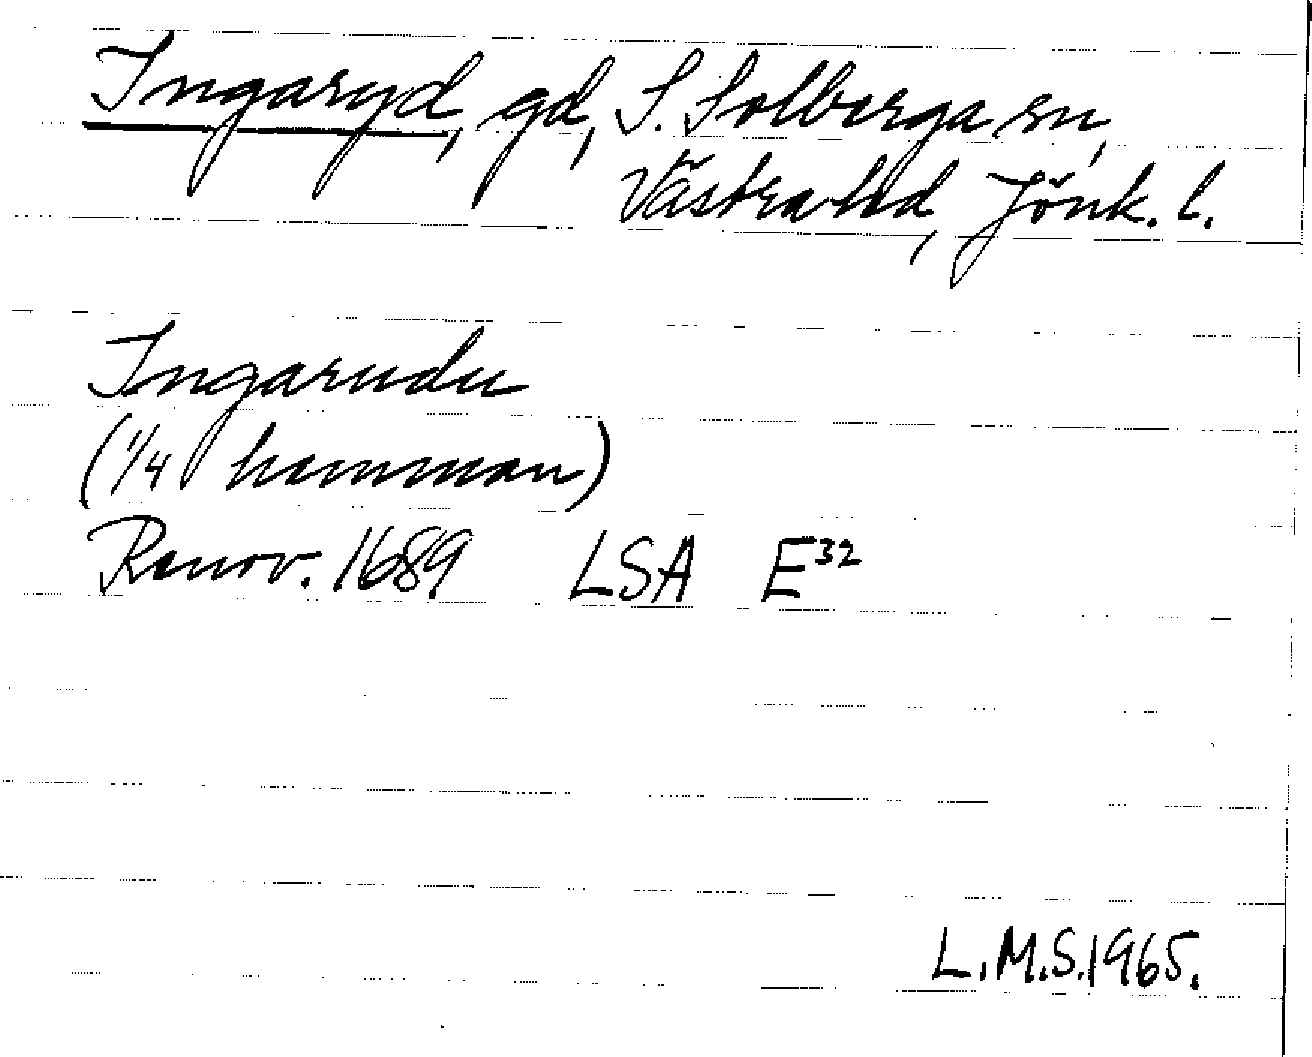 Ingaryd, gd, S. Solberga sn,
Västra hd, Jönk. l.
Ingarudu
(1/4 hemman)
Renov. 1689 LSA E³²
L.M.S. 1965.